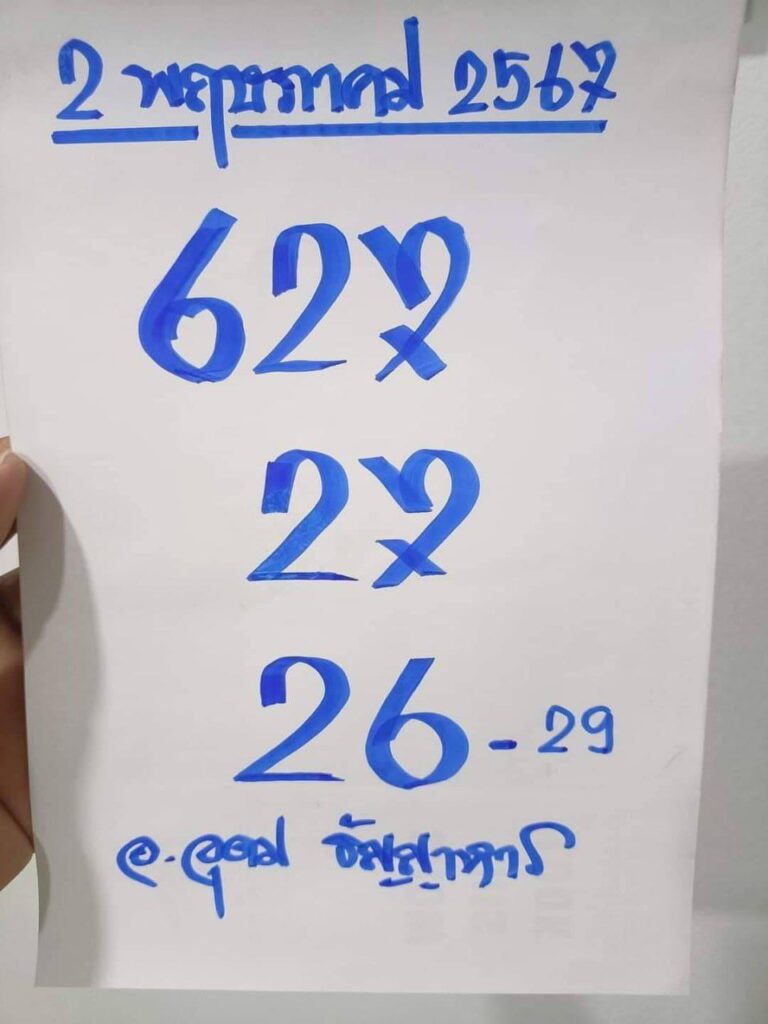 2 พฤษภาคม 2567
627
27
26 - 29
อ.อุดม ธัญญาหาร